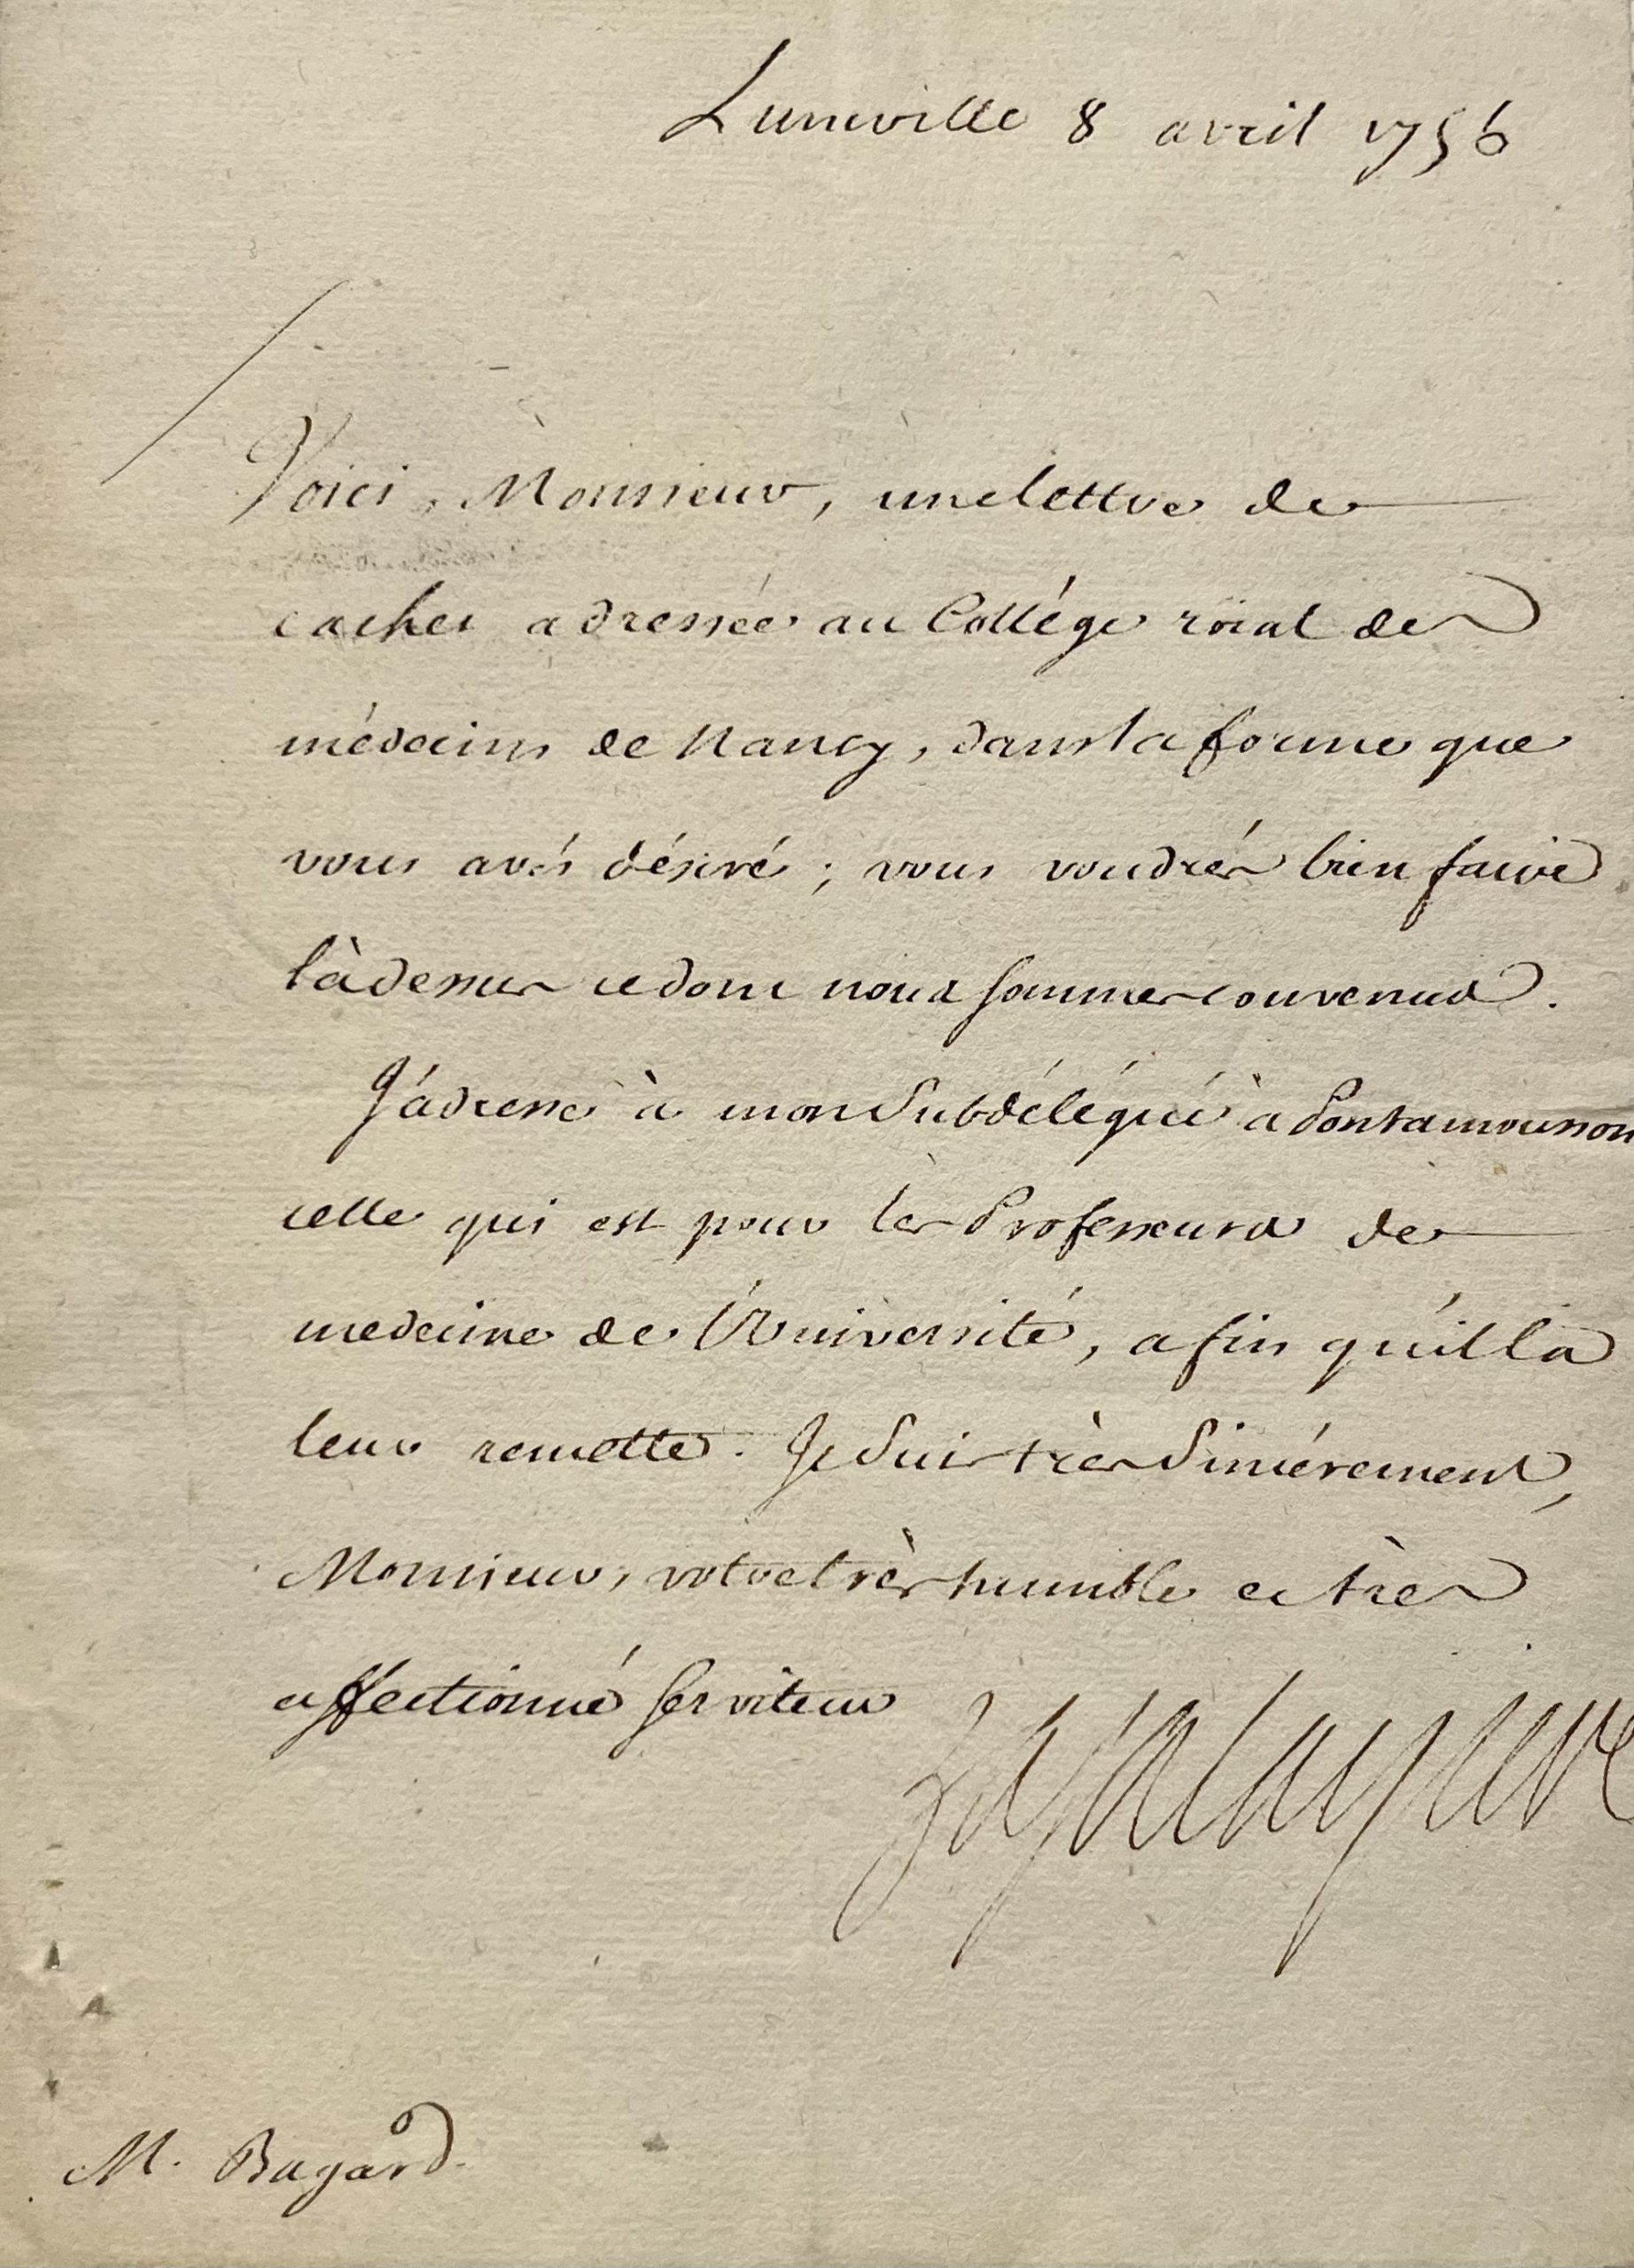 Luneville 8 avril 1756
Voici, Monsieur, une lettre de
cachet adressée au Collége roïal de
médecins de Nancy, dans la forme que
vous avés désiré; vous voudrés bien faire
làdessus ce dont nous sommes convenus.
J'adresse à mon Subdélégué à Pontamousson
celle qui est pour les Professeurs de
medecine de l'Université, afin qu'il la
leur remette. Je suis très sincérement,
Monsieur, votre très humble et très
affectionné serviteur
La Galaiziere
M. Bagard.